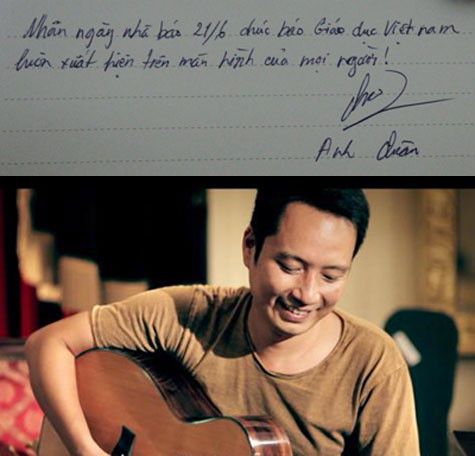 Nhân ngày nhà báo 21/6 chúc báo Giáo dục Việt nam
luôn xuất hiện trên màn hình của mọi người!
Anh Quân